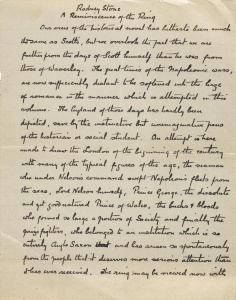 Rodney Stone
A Reminiscence of the Ring
Our idea of the historical novel has hitherto been much
the same as Scott's, but we overlook the fact that we are
further from the days of Scott himself than he was from
those of Waverley. The great times of the Napoleonic wars,
are now sufficiently distant to be captured into the large
of romance in the manner which is attempted in this
volume. The England of those days has hardly been
depicted, save by the instructive but unimaginative pens
of the historian or social student. An attempt is here
made to draw the London of the beginning of the century
with many of the typical figures of the age, the seamen
who under Nelson's command swept Napoleon's fleets from
the seas, lord Nelson himself, Prince George, the dissolute
and yet good natured Prince of Wales, the bucks & bloods
who formed so large a portion of Society and finally the
prizefighter, who belonged to an institution which is so
entirely Anglo Saxon and has arisen so spontaneously
from the people that it deserves more serious attention than
it has ever received. The ring may be viewed now with